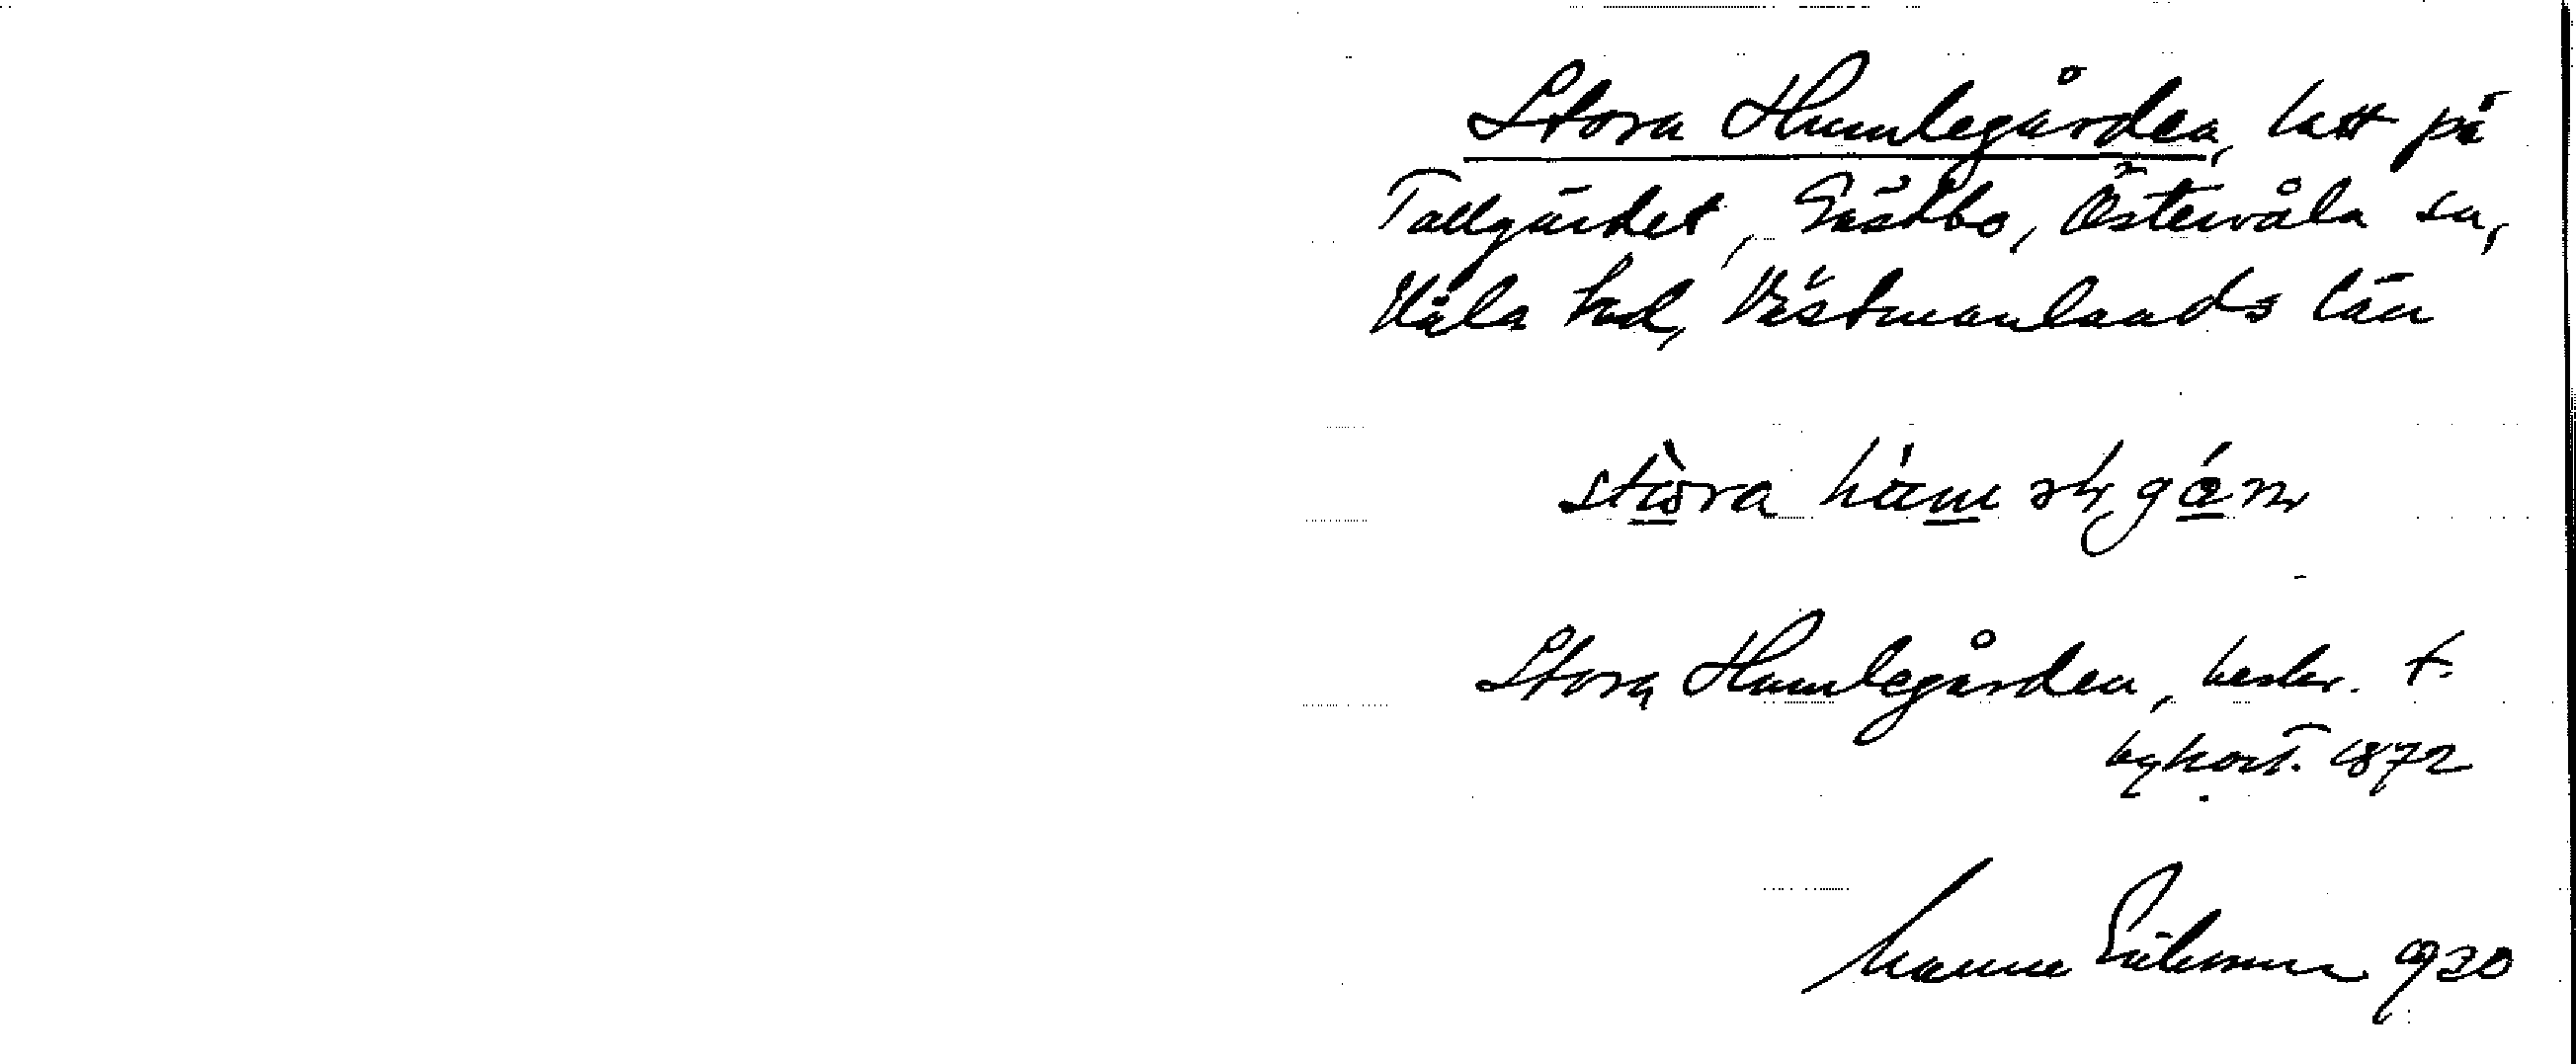 Stora Humlegården, hatt på
Tallgärdet, Gästbo, Östervåla sn,
Våla hd, Västmanlands län
stora
Stora Humlegården, beskr. t.
bykart. 1872
Manne Eriksson 1930